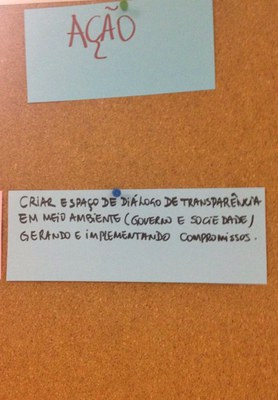 AÇÃO
CRIAR ESPAÇO DE DIÁLOGO DE TRANSPARÊNCIA
EM MEIO AMBIENTE (GOVERNO E SOCIEDADE)
GERANDO E IMPLEMENTANDO COMPROMISSOS.